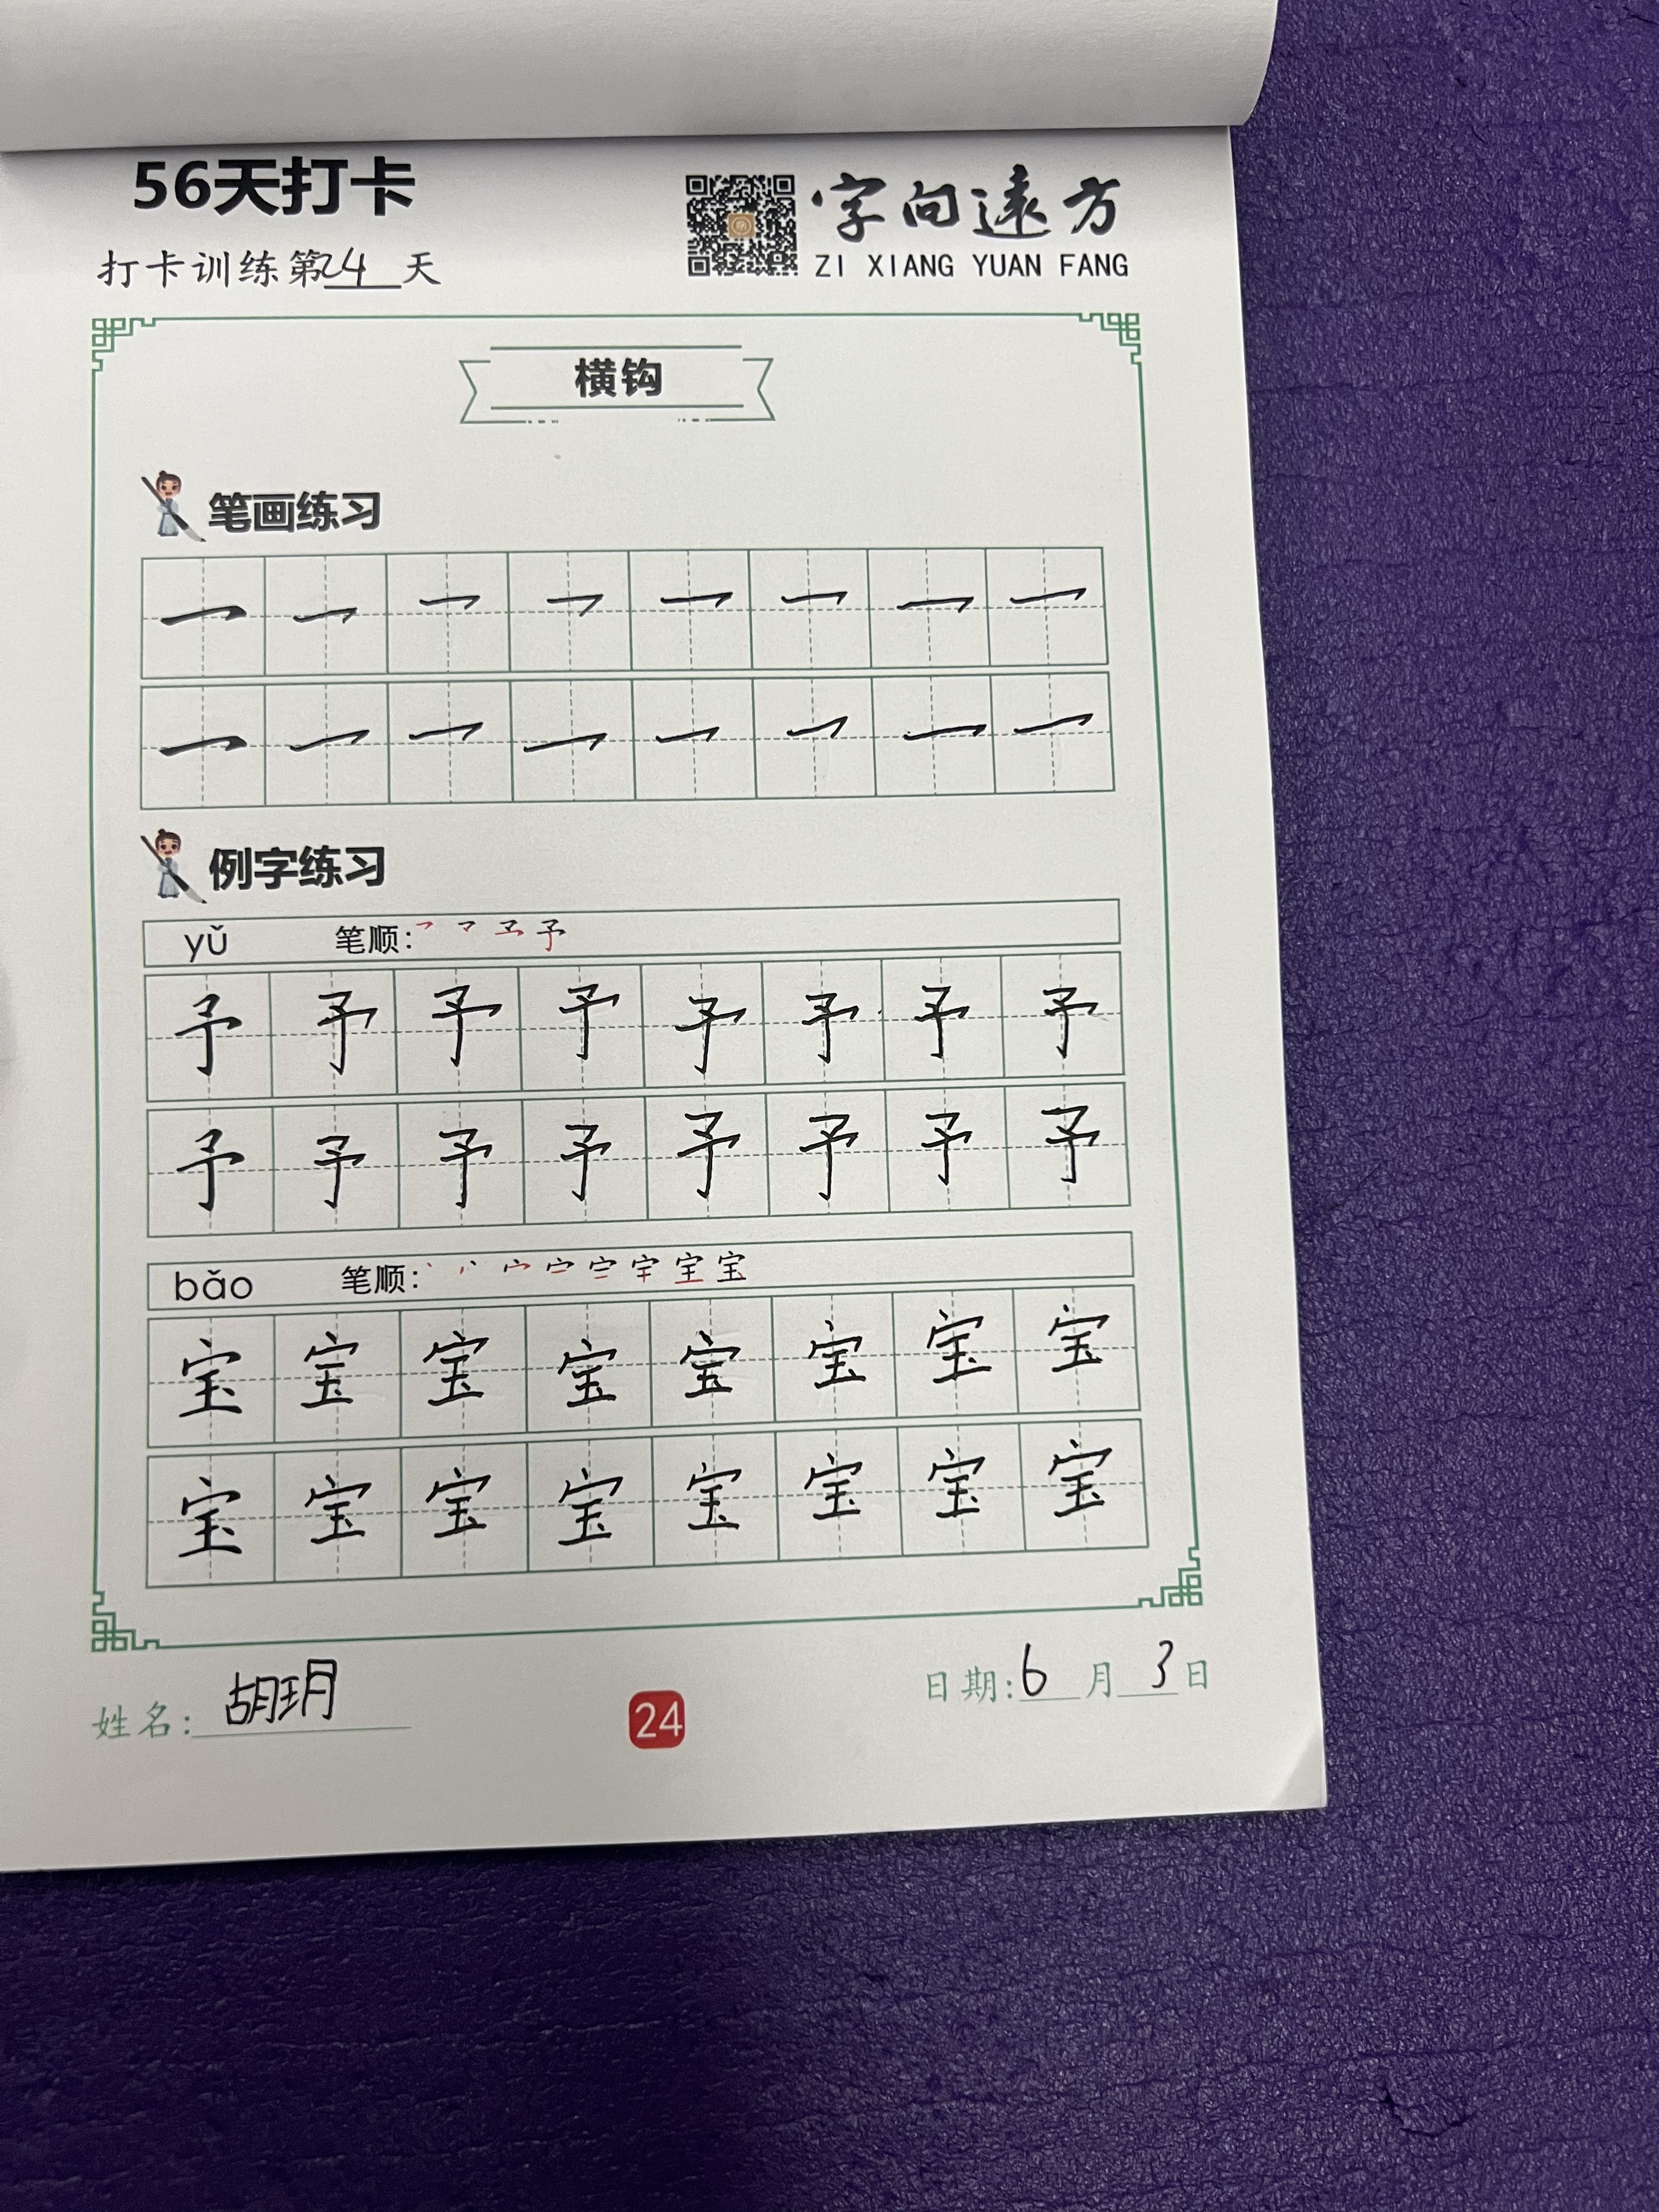 56天打卡
字向遠方
打卡训练第24天
ZI XIANG YUAN FANG
横钩
笔画练习
例字练习
yǔ 笔顺: 予
予 予 予 予 予 予 予 予
予 予 予 予 予 予 予 予
bǎo 笔顺: 宝
宝 宝 宝 宝 宝 宝 宝 宝
宝 宝 宝 宝 宝 宝 宝 宝
姓名: 胡玥
24
日期: 6 月 3 日